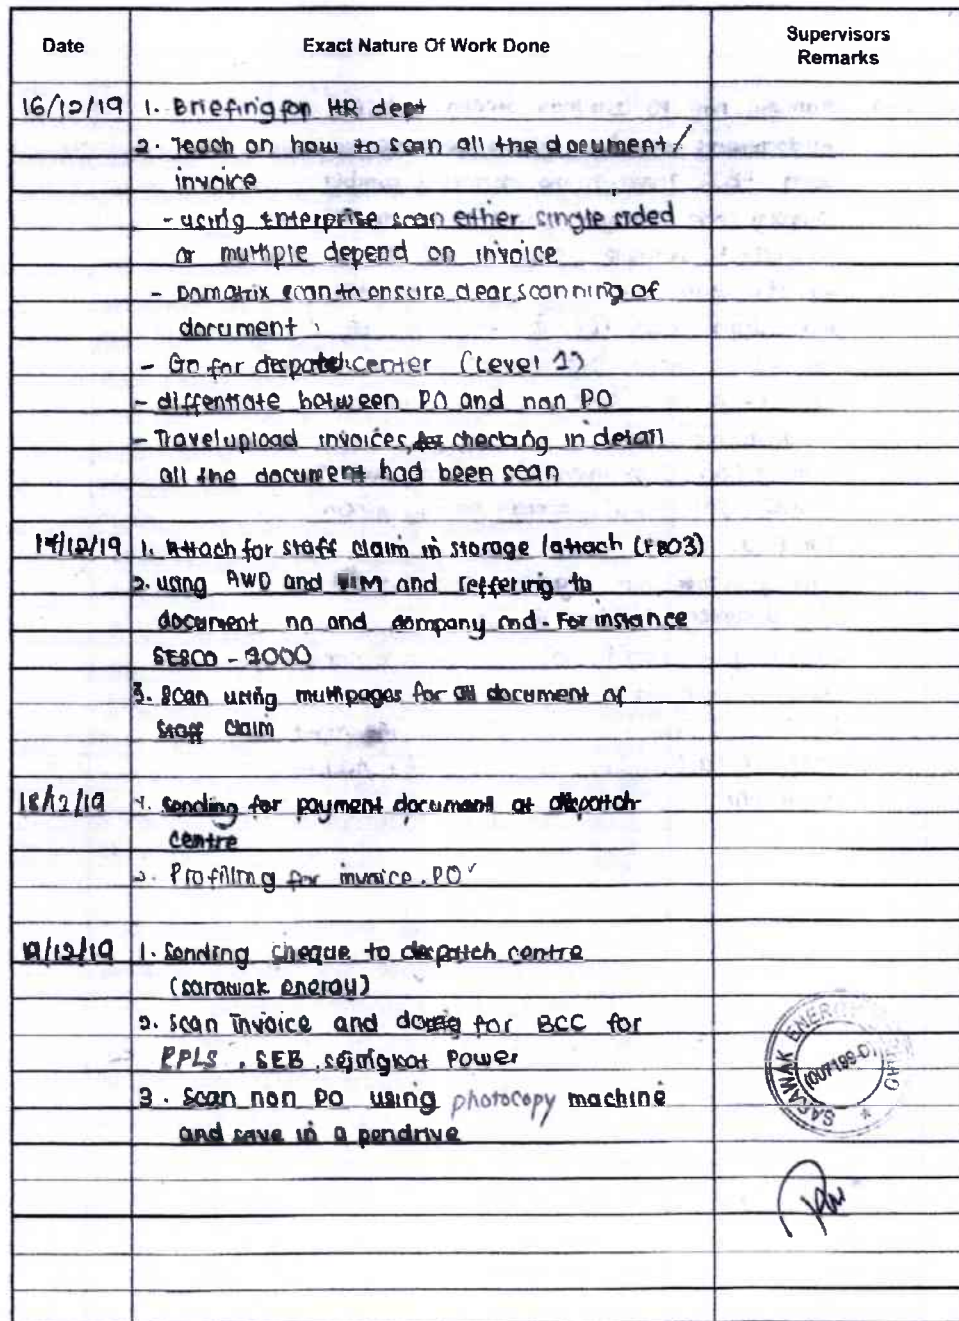 Date Exact Nature Of Work Done Supervisors Remarks
16/12/19 1. Briefing for HR dept
2. Teach on how to scan all the document/
invoice
- using Enterprise scan either single sided
or multiple depend on invoice
- scan to ensure clear scanning of
document
- Go for despatch center (Level 1)
- diffentiate between PO and non PO
- Travel upload invoices, checking in detail
all the document had been scan
17/12/19 1. Attach for staff claim in storage /attach (FB03)
2. using AWD and and reffering to
document no and company . For instance
SESCO -
3. Scan using multipages for all document of
staff claim
18/12/19 1. Sending for payment document at despatch
centre
2. Profiling for invoice. PO
19/12/19 1. Sending cheque to despatch centre
(sarawak energy)
2. Scan invoice and doing for BCC for
PPLS, SEB, sejingkat Power
3. Scan non PO using photocopy machine
and save in a pendrive
SARAWAK ENERGY
(007199-D)